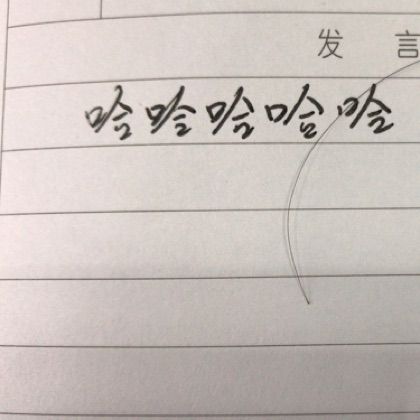 发言
哈哈哈哈哈